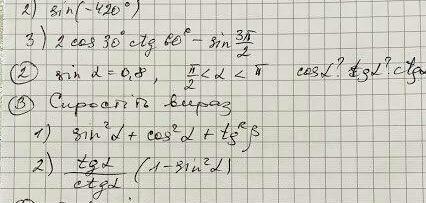 2) sin(-420°)
3) 2 cos 30° ctg 60° - sin 3π/2
② sin α = 0,8, π/2 < α < π cos α? tg α? ctg α
③ Спростіть вираз
1) sin²α + cos²α + tg²β
2) tgα/ctgα (1 - sin²α)